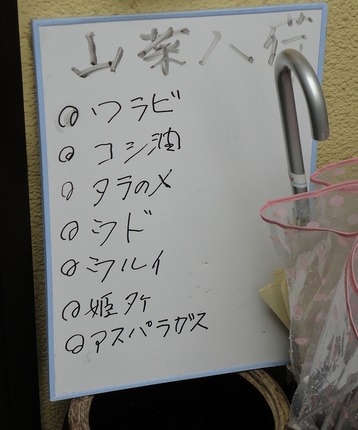 山菜入荷
◎ワラビ
◎コシ油
◎タラのメ
◎ウド
◎ミルイ
◎姫タケ
◎アスパラガス